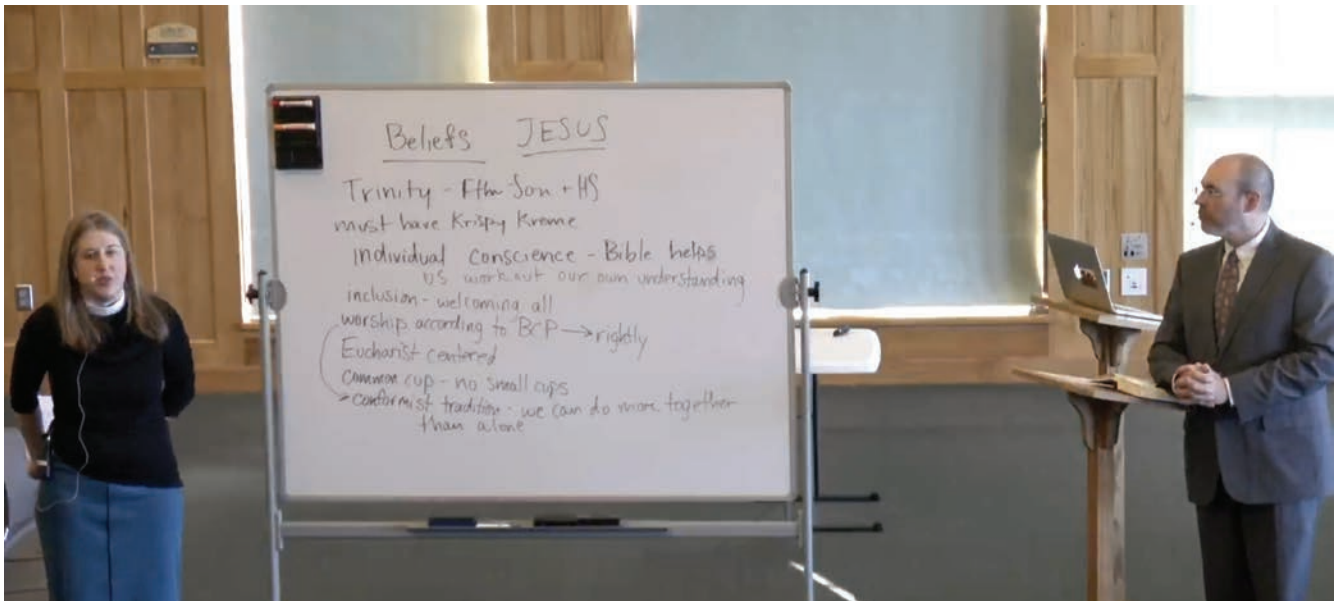 Beliefs JESUS
Trinity - Fthr Son + HS
must have Krispy Kreme
individual conscience - Bible helps
us work out our own understanding
inclusion - welcoming all
worship according to BCP → rightly
Eucharist centered
common cup - no small cups
conformist tradition - we can do more together
than alone